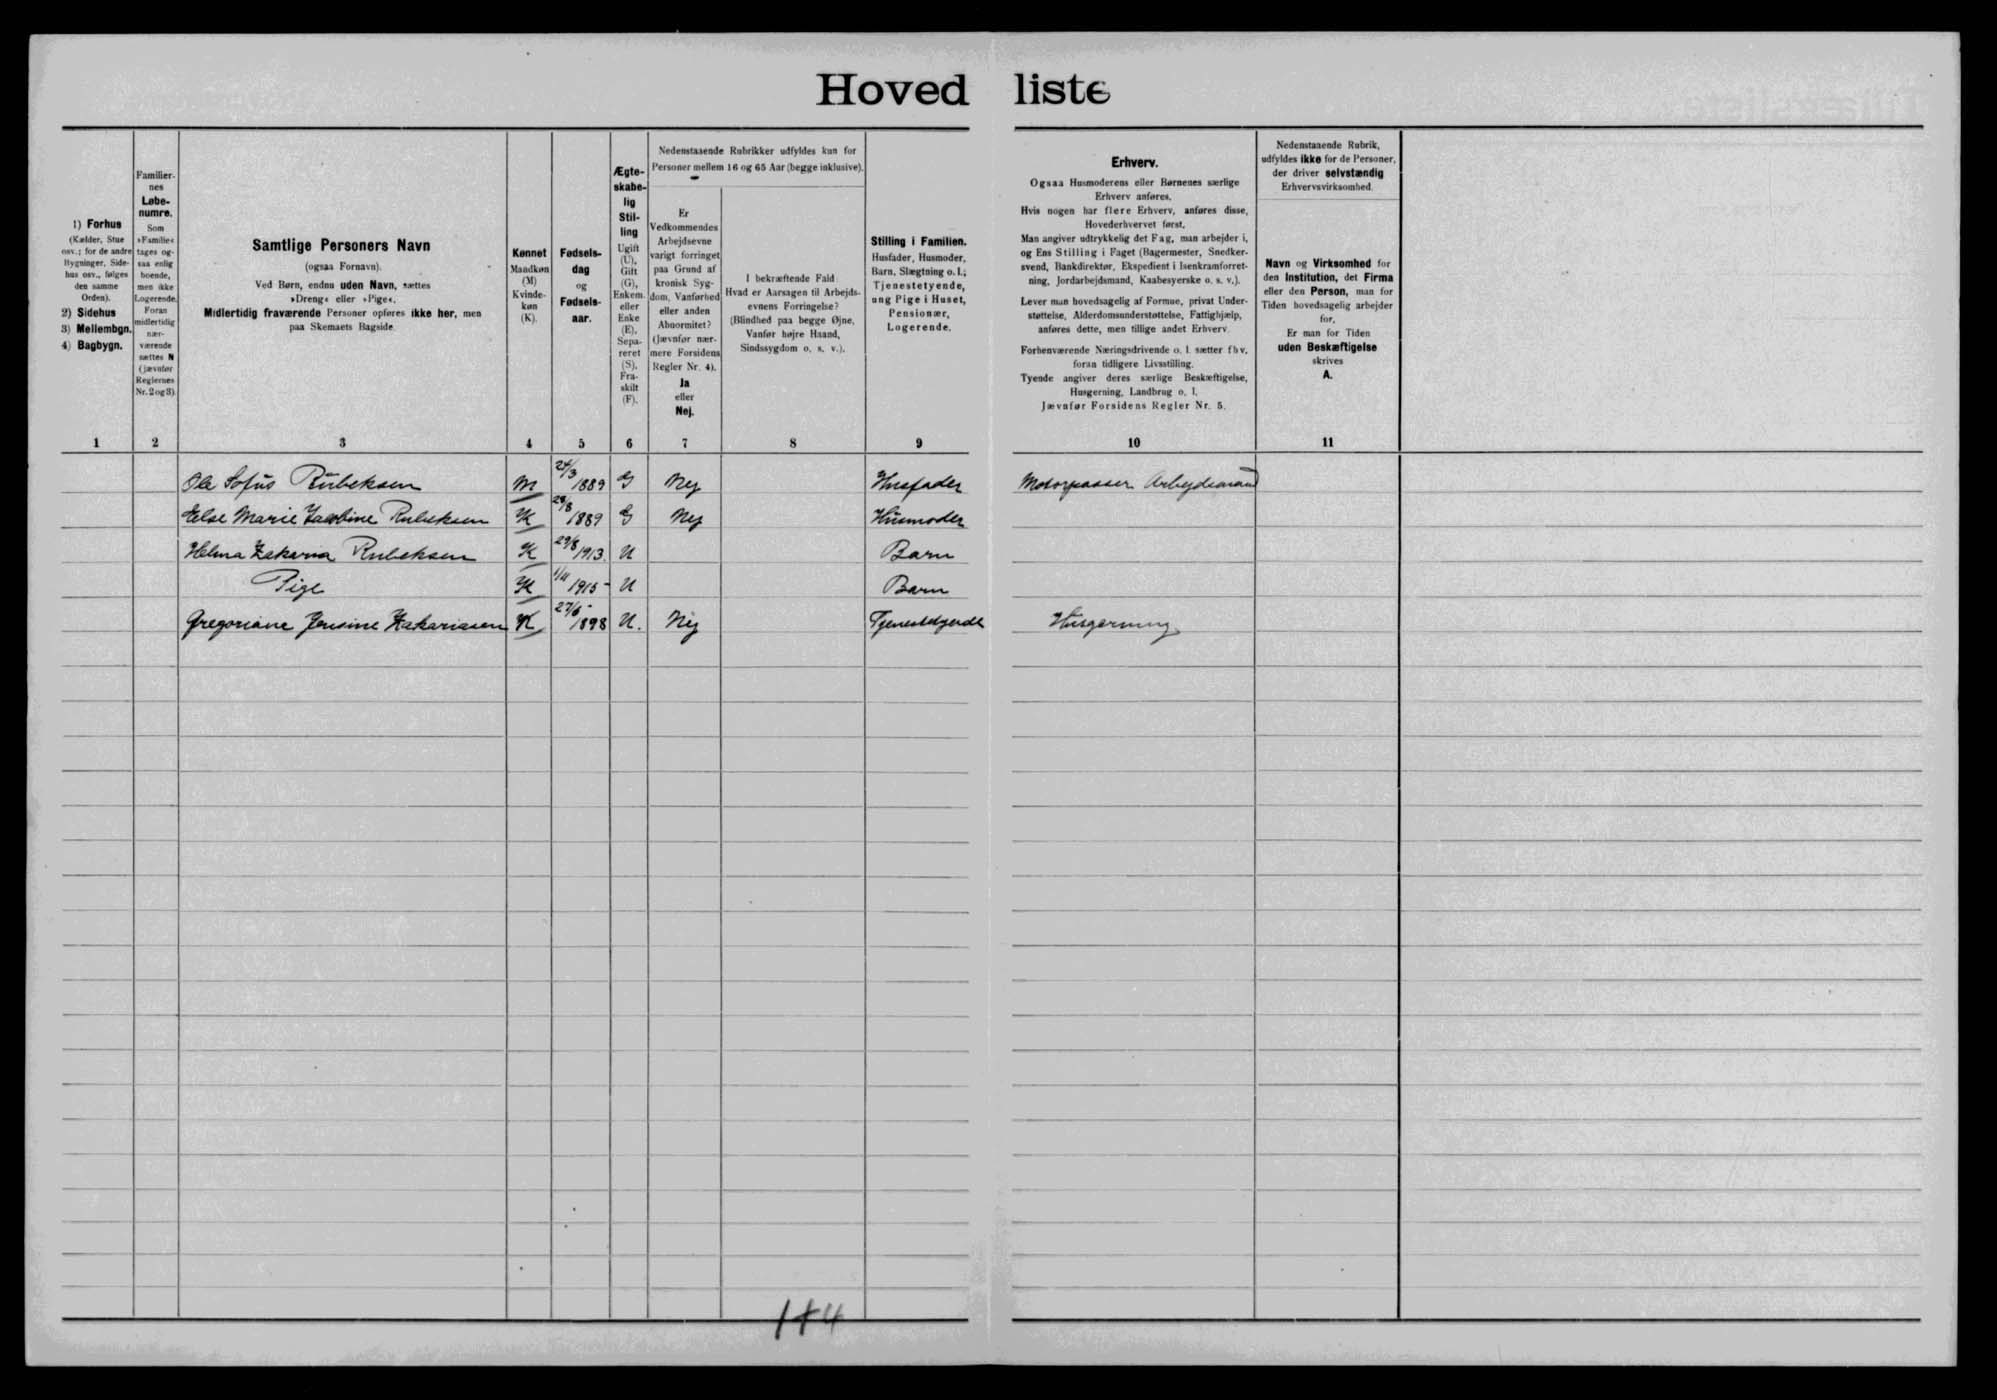 Hovedliste
1) Forhus
(Kælder, Stue
osv.; for de andre
Bygninger, Side-
hus osv., følges
den samme
Orden).
2) Sidehus
3) Mellembgn.
4) Bagbygn.
Familier-
nes
Løbe-
numre.
Som
»Familie«
tages og-
saa enlig
boende,
men ikke
Logerende.
Foran
midlertidig
nær-
værende
sættes N
(jævnfør
Reglernes
Nr. 2 og 3).
Samtlige Personers Navn
(ogsaa Fornavn).
Ved Børn, endnu uden Navn, sættes
»Dreng« eller »Pige«.
Midlertidig fraværende Personer opføres ikke her, men
paa Skemaets Bagside.
Kønnet
Mandkøn
(M)
Kvinde-
køn
(K).
Fødsels-
dag
og
Fødsels-
aar.
Ægte-
skabe-
lig
Stil-
ling
Ugift
(U),
Gift
(G),
Enkem.
eller
Enke
(E),
Sepa-
reret
(S),
Fra-
skilt
(F).
Nedenstaaende Rubrikker udfyldes kun for
Personer mellem 16 og 65 Aar (begge inklusive).
Er
Vedkommendes
Arbejdsevne
varigt forringet
paa Grund af
kronisk Syg-
dom, Vanførhed
eller anden
Abnormitet?
(Jævnfør nær-
mere Forsidens
Regler Nr. 4).
Ja
eller
Nej.
I bekræftende Fald
Hvad er Aarsagen til Arbejds-
evnens Forringelse?
(Blindhed paa begge Øjne,
Vanfør højre Haand,
Sindssygdom o. s. v.).
Stilling i Familien.
Husfader, Husmoder,
Barn, Slægtning o. l.;
Tjenestetyende,
ung Pige i Huset,
Pensionær,
Logerende.
Erhverv.
Ogsaa Husmoderens eller Børnenes særlige
Erhverv anføres.
Hvis nogen har flere Erhverv, anføres disse,
Hovederhvervet først.
Man angiver udtrykkelig det Fag, man arbejder i,
og Ens Stilling i Faget (Bagermester, Snedker-
svend, Bankdirektør, Ekspedient i Isenkramforret-
ning, Jordarbejdsmand, Kaabesyerske o. s. v.).
Lever man hovedsagelig af Formue, privat Under-
støttelse, Alderdomsunderstøttelse, Fattighjælp,
anføres dette, men tillige andet Erhverv.
Forhenværende Næringsdrivende o. l. sætter fhv.
foran tidligere Livsstilling.
Tyende angiver deres særlige Beskæftigelse,
Husgerning, Landbrug o. l.
Jævnfør Forsidens Regler Nr. 5.
Nedenstaaende Rubrik,
udfyldes ikke for de Personer,
der driver selvstændig
Erhvervsvirksomhed.
Navn og Virksomhed for
den Institution, det Firma
eller den Person, man for
Tiden hovedsagelig arbejder
for.
Er man for Tiden
uden Beskæftigelse
skrives
A.
1 2 3 4 5 6 7 8 9 10 11
Ole Sofus Rubeksen M 24/3 1889 G Nej Husfader Motorpasser Arbejdsmand
Else Marie Jacobine Rubeksen K 28/8 1889 G Nej Husmoder
Helma Zakaria Rubeksen K 29/8 1913. U Barn
Pige K 1/11 1915 U Barn
Gregoriane Jensine Zakariasen K 27/6 1898 U. Nej Tjenestetyende Husgerning